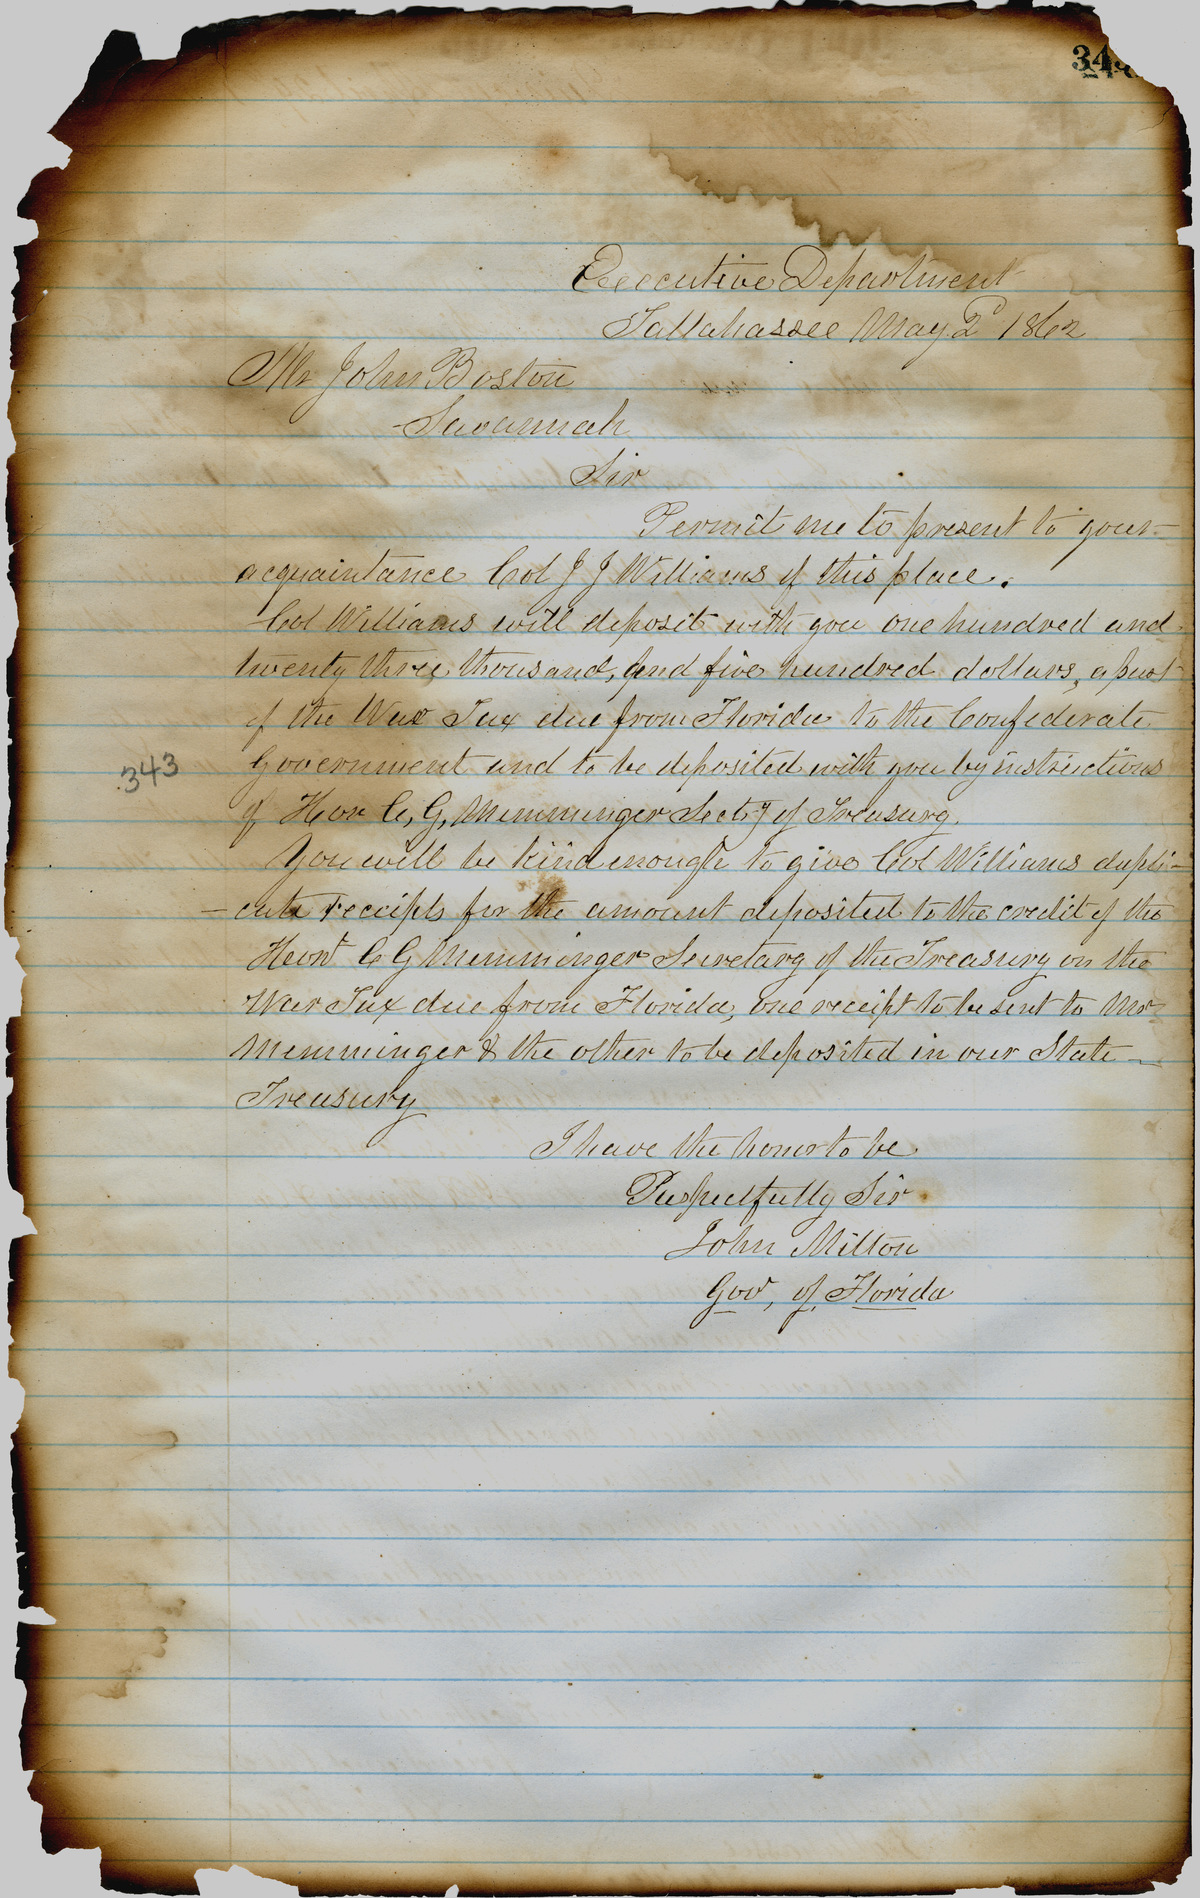 343
Executive Department
Tallahassee May 2d 1862
Mr John Boston
Savannah
Sir
Permit me to present to your
acquaintance Col J J Williams of this place.
Col Williams will deposit with you one hundred and
twenty three thousand, and five hundred dollars, a part
of the War Tax due from Florida to the Confederate
Government and to be deposited with you by instructions
343
of Hon C, G, Memminger Secty of Treasury.
You will be kind enough to give Col Williams dupli-
-cate receipts for the amount deposited to the credit of the
Honr C G Memminger Secretary of the Treasury on the
War Tax due from Florida, one receipt to be sent to Mr
Memminger & the other to be deposited in our State
Treasury
I have the honor to be
Respectfully Sir
John Milton
Govr, of, Florida